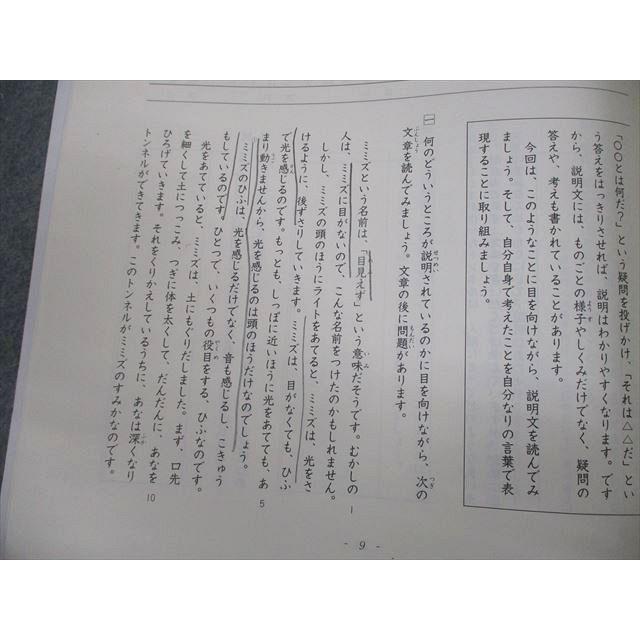 「〇〇とは何だ？」という疑問を投げかけ、「それは△△だ」とい
う答えをはっきりさせれば、説明はわかりやすくなります。です
から、説明文には、ものごとの様子やしくみだけでなく、疑問の
答えや、考えも書かれていることがあります。
今回は、このようなことに目を向けながら、説明文を読んでみ
ましょう。そして、自分自身で考えたことを自分なりの言葉で表
現することに取り組みましょう。
一 何のどういうところが説明されているのかに目を向けながら、次の
文章を読んでみましょう。文章の後に問題があります。
ミミズという名前は、「目見えず」という意味だそうです。むかしの
人は、ミミズに目がないので、こんな名前をつけたのかもしれません。
しかし、ミミズの頭のほうにライトをあてると、ミミズは、光をさ
けるように、後ずさりしていきます。ミミズは、目がなくても、ひふ
で光を感じるのです。もっとも、しっぽに近いほうに光をあてても、あ
まり動きませんから、光を感じるのは頭のほうだけなのでしょう。
ミミズのひふは、光を感じるだけでなく、音も感じるし、こきゅう
もしているのです。ひとつで、いくつもの役目をする、ひふなのです。
光をあてていると、ミミズは、土にもぐりだしました。まず、口先
を細くして土につっこみ、つぎに体を太くして、だんだんに、あなを
ひろげていきます。それをくりかえしているうちに、あなは深くなり
トンネルができてきます。このトンネルがミミズのすみかなのです。
1
5
10
- 9 -